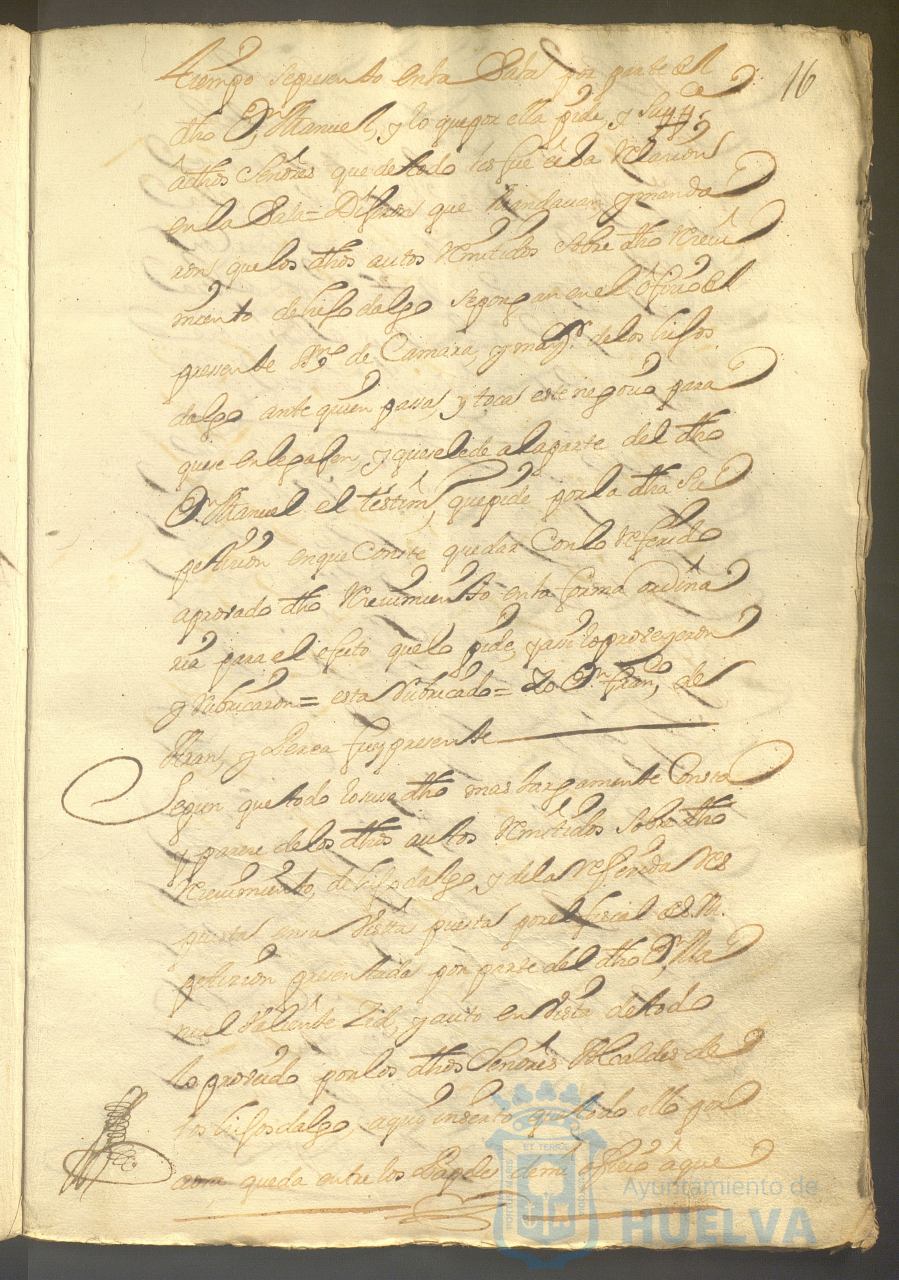 16
tiempo sepresento enla Sala por parte del
dho Dn Manuel, y lo que por ella pide, y supp.ca
â dhos Señores que de todo les fue fha Relazion
en la Sala = Dijeron que mandavan y manda
ron que los dhos autos Remitidos sobre dho Recivi
miento de hijodalgo sepongan en el ofizio del
presente Sno de Camara, y mayr de los hijos
dalgo ante quien passa y toca este negozio para
que se enlegajen, y que se le de a la parte del dho
Dn Manuel el testimo que pide por la dha su
petizion en que Conste quedar Con lo referido
aprovado dho Recivimiento en la forma ordina
ria para el efeto que lo pide, y assi lo proveyeron
y Rubricaron = esta Rubricado = Yo Dn Franco de
y Perea fuy presente
Segun que todo lo suso dho mas largamente Consta
y pareze de los dhos autos Remitidos sobre dho
Recivimiento, de hijodalgo, y de la referida Res
puesta en su Vista puesta por el fiscal de S.M.
petizion presentada por parte del dho Dn Ma
nuel Valiente Zid, y auto en Vista de todo
lo proveido por los dhos Señores Alcaldes de
los hijosdalgo, aqui inserto, que todo ello por
aora queda entre los Papeles de mi ofizio â que
Ayuntamiento de
HUELVA